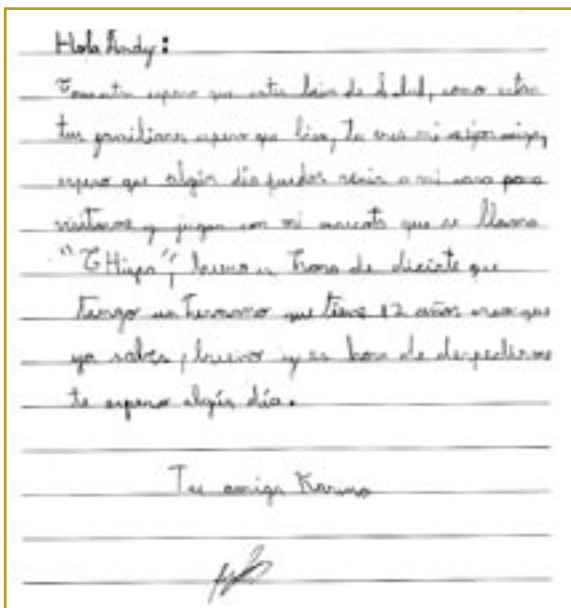 Hola Andy:
espero que estes bien de salud, como estan
tus familiares espero que bien, tu eres mi mejor amiga,
espero que algún día puedas venir a mi casa para
visitarme y jugar con mi mascota que se llama
bueno es hora de decirte que
tengo un hermano que tiene 12 años creo que
ya sabes, bueno ya es hora de despedirme
te espero algún día.
Tu amiga Karina